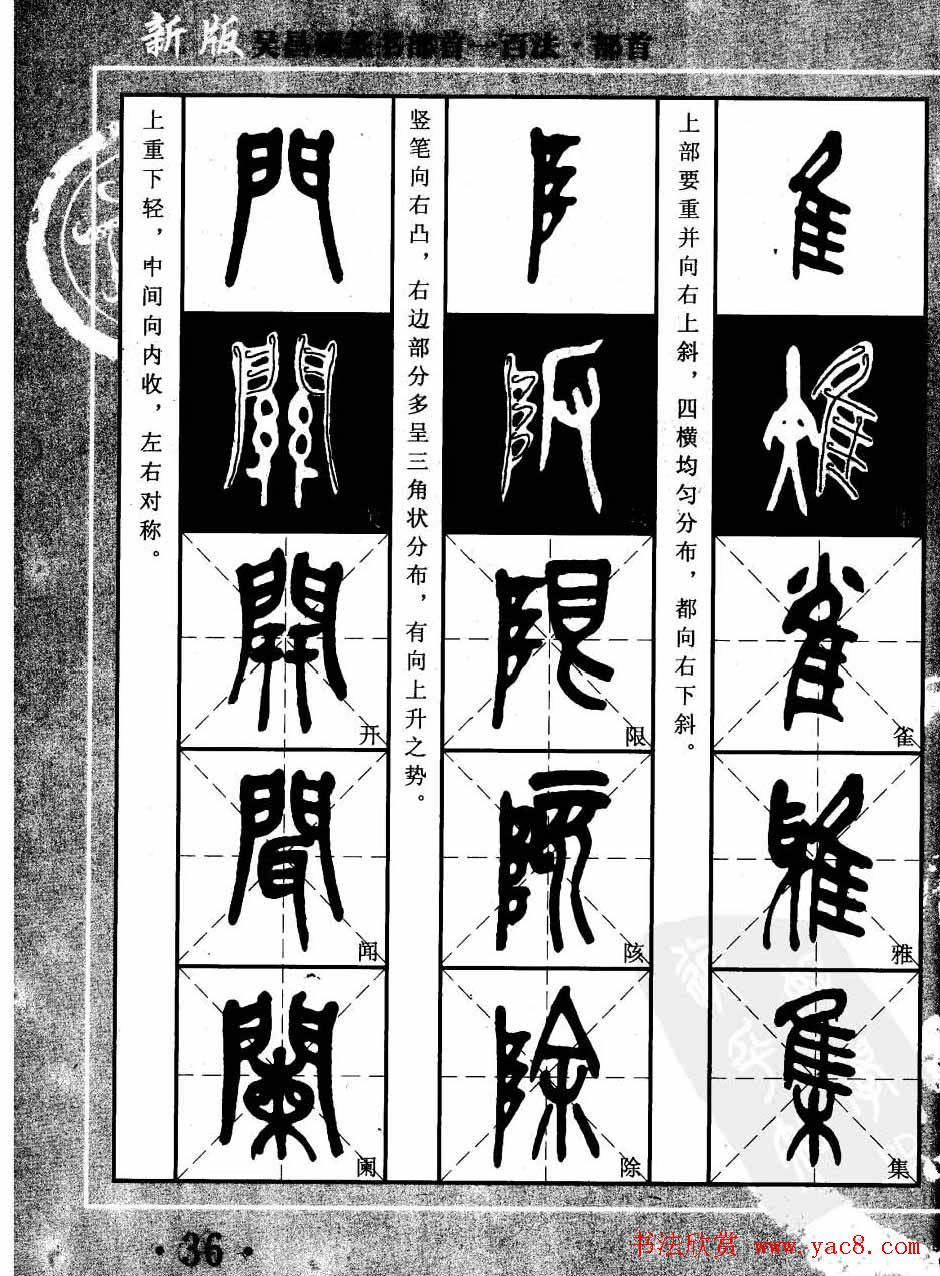 新版 吴昌硕篆书部首一百法·部首
隹
雀
雅
集
上部要重并向右上斜，四横均匀分布，都向右下斜。
阝
限
陔
除
竖笔向右凸，右边部分多呈三角状分布，有向上升之势。
門
开
闻
阑
上重下轻，中间向内收，左右对称。
·36·
书法欣赏 www.yac8.com